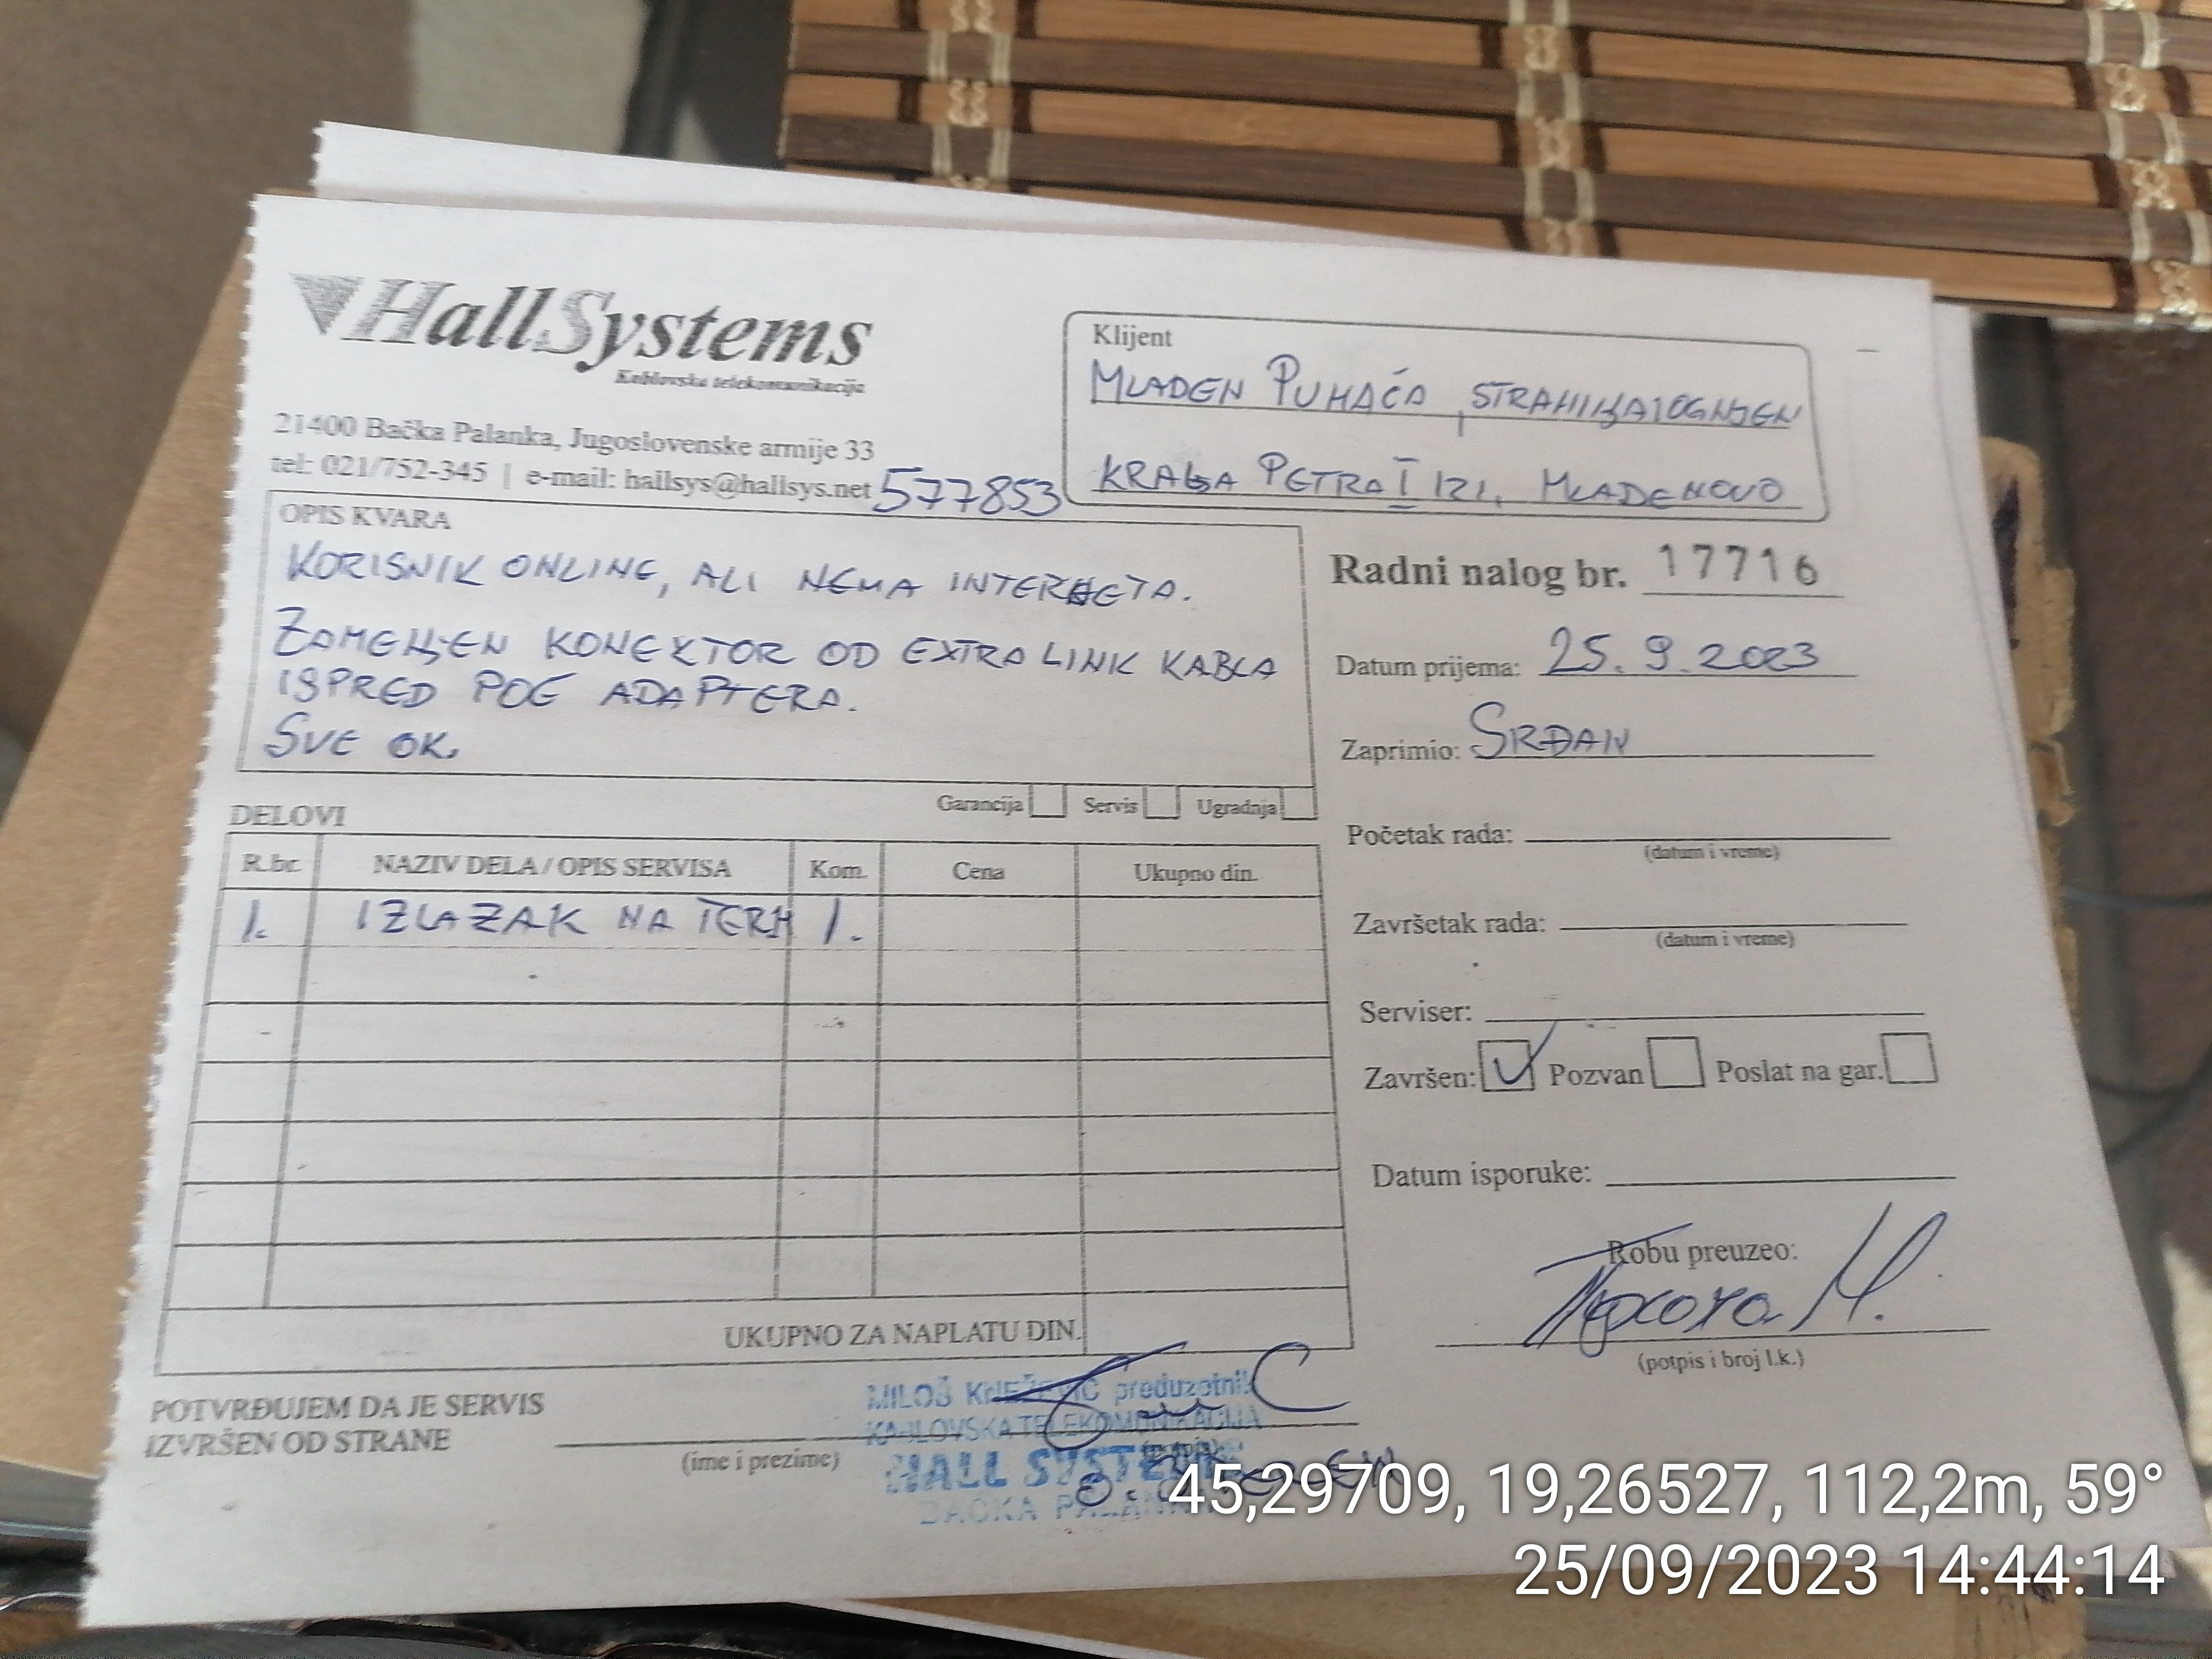 HallSystems
Kablovska telekomunikacija
21400 Bačka Palanka, Jugoslovenske armije 33
tel: 021/752-345 | e-mail: hallsys@hallsys.net
577853
Klijent
MLADEN PUHAĆA
KRALJA PETRA I 121, MLADENOVO
OPIS KVARA
KORISNIK ONLINE, ALI NEMA INTERNETA.
ZAMENJEN KONEKTOR OD EXTRALINK KABLA
ISPRED POE ADAPTERA.
SVE OK.
Garancija Servis Ugradnja
Radni nalog br. 17716
Datum prijema: 25.9.2023
Zaprimio: SRĐAN
Početak rada:
(datum i vreme)
Završetak rada:
(datum i vreme)
Serviser:
Završen: Pozvan Poslat na gar.
Datum isporuke:
Robu preuzeo:
(potpis i broj l.k.)
DELOVI
R.br. NAZIV DELA / OPIS SERVISA Kom. Cena Ukupno din.
1. IZLAZAK NA TERN 1.
UKUPNO ZA NAPLATU DIN.
POTVRĐUJEM DA JE SERVIS
IZVRŠEN OD STRANE
(ime i prezime)
MILOŠ KNEŽEVIĆ preduzetnik
KABLOVSKA TELEKOMUNIKACIJA
HALL SYSTEMS
BAČKA PALANKA
45,29709, 19,26527, 112,2m, 59°
25/09/2023 14:44:14